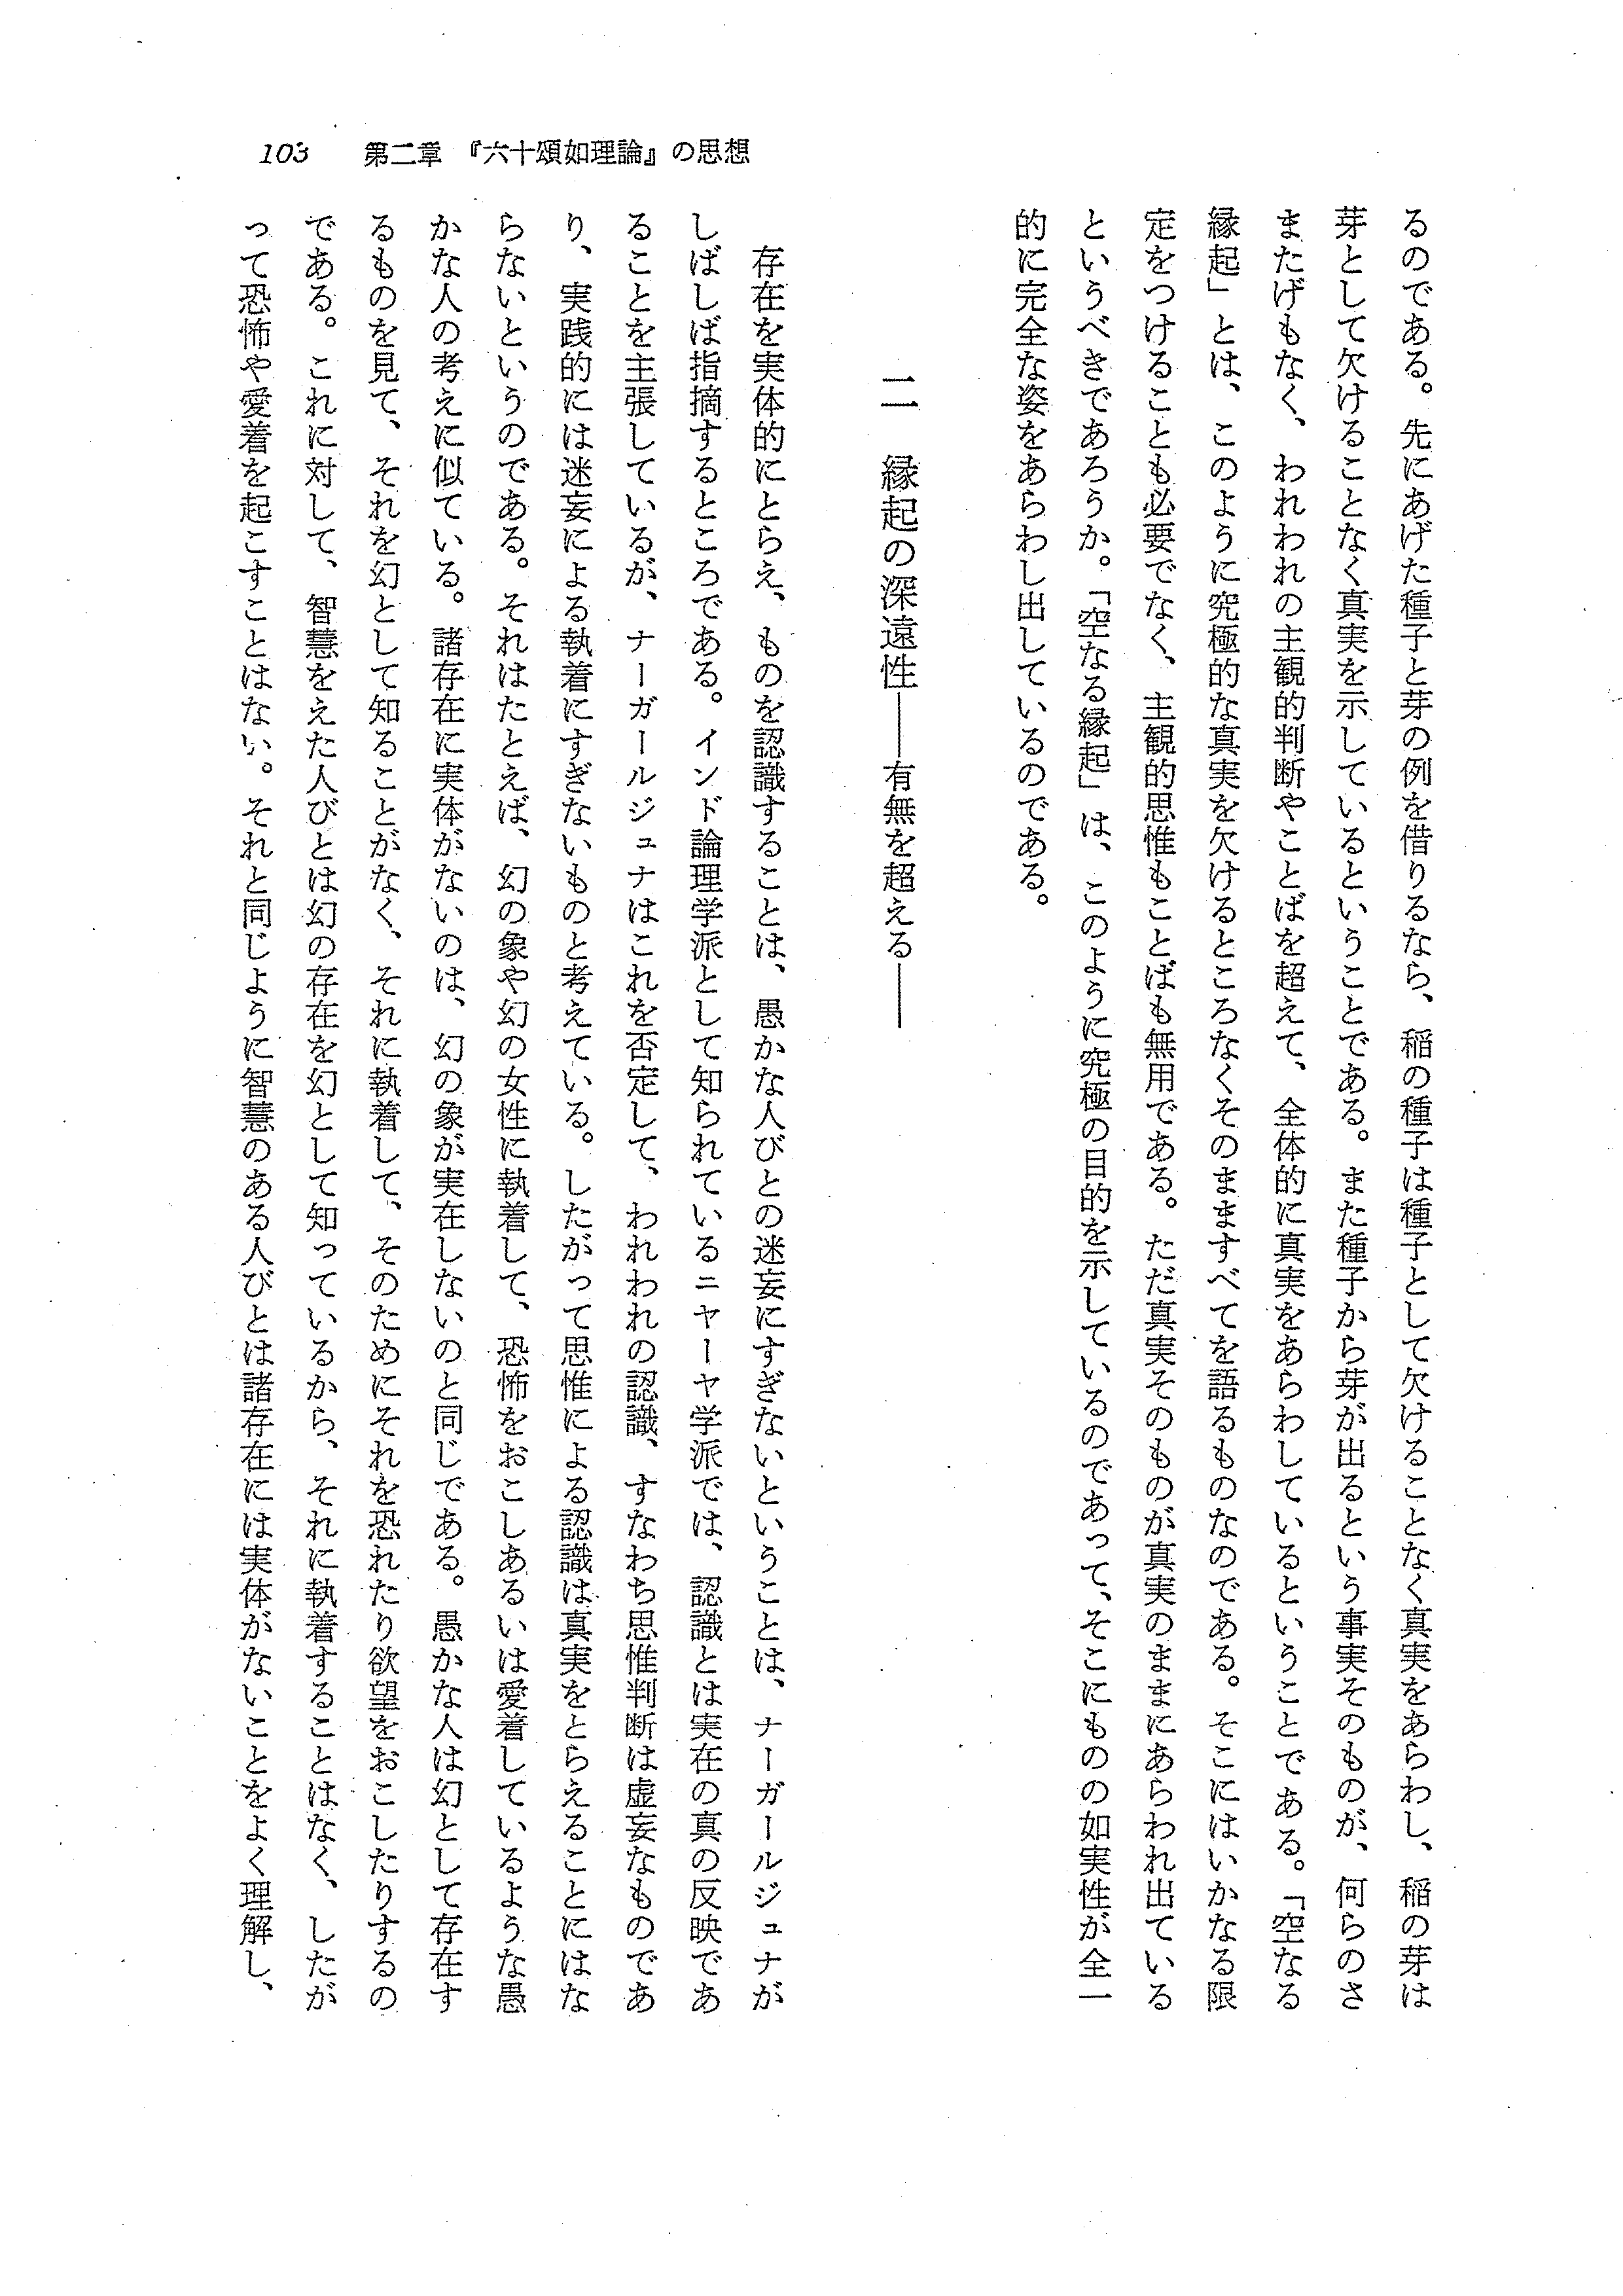 103 第二章 『六十頌如理論』の思想
るのである。先にあげた種子と芽の例を借りるなら、稲の種子は種子として欠けることなく真実をあらわし、稲の芽は
芽として欠けることなく真実を示しているということである。また種子から芽が出るという事実そのものが、何らのさ
またげもなく、われわれの主観的判断やことばを超えて、全体的に真実をあらわしているということである。「空なる
縁起」とは、このように究極的な真実を欠けるところなくそのまますべてを語るものなのである。そこにはいかなる限
定をつけることも必要でなく、主観的思惟もことばも無用である。ただ真実そのものが真実のままにあらわれ出ている
というべきであろうか。「空なる縁起」は、このように究極の目的を示しているのであって、そこにものの如実性が全一
的に完全な姿をあらわし出しているのである。
二 縁起の深遠性――有無を超える――
存在を実体的にとらえ、ものを認識することは、愚かな人びとの迷妄にすぎないということは、ナーガールジュナが
しばしば指摘するところである。インド論理学派として知られているニヤーヤ学派では、認識とは実在の真の反映であ
ることを主張しているが、ナーガールジュナはこれを否定して、われわれの認識、すなわち思惟判断は虚妄なものであ
り、実践的には迷妄による執着にすぎないものと考えている。したがって思惟による認識は真実をとらえることにはな
らないというのである。それはたとえば、幻の象や幻の女性に執着して、恐怖をおこしあるいは愛着しているような愚
かな人の考えに似ている。諸存在に実体がないのは、幻の象が実在しないのと同じである。愚かな人は幻として存在す
るものを見て、それを幻として知ることがなく、それに執着して、そのためにそれを恐れたり欲望をおこしたりするの
である。これに対して、智慧をえた人びとは幻の存在を幻として知っているから、それに執着することはなく、したが
って恐怖や愛着を起こすことはない。それと同じように智慧のある人びとは諸存在には実体がないことをよく理解し、